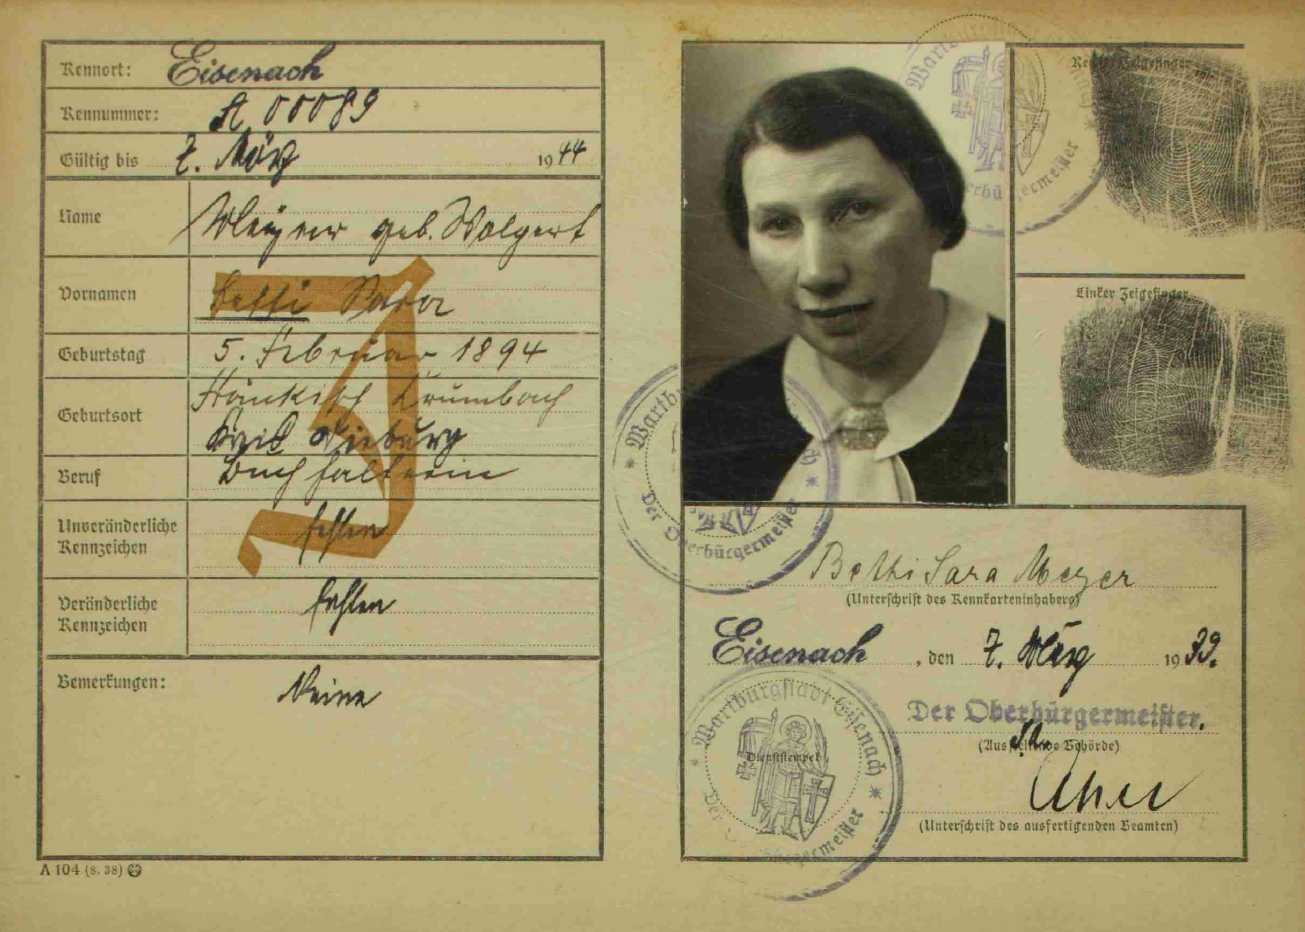 Kennort: Eisenach
Kennummer: A 00089
Gültig bis 7. März 1944
Name Meyer geb. Wolgert
Vornamen Bethi Sara
Geburtstag 5. Februar 1894
Geburtsort Fränkisch Krumbach
Kreis Dieburg
Beruf Buchhalterin
Unveränderliche Kennzeichen fehlen
Veränderliche Kennzeichen fehlen
Bemerkungen: Keine
J
A 104 (8. 38)
Rechter Zeigefinger
Linker Zeigefinger
Wartburgstadt
Der Oberbürgermeister
Bethi Sara Meyer
(Unterschrift des Kennkarteninhabers)
Eisenach, den 7. März 1939.
Der Oberbürgermeister.
(Ausstellende Behörde)
Wartburgstadt Eisenach
Der Oberbürgermeister
Dienststempel
(Unterschrift des ausfertigenden Beamten)